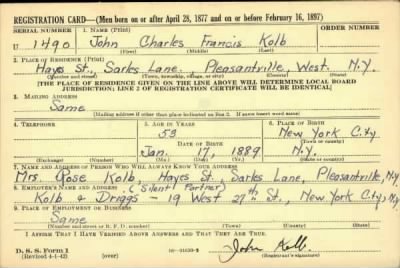 REGISTRATION CARD—(Men born on or after April 28, 1877 and on or before February 16, 1897)
SERIAL NUMBER 1. NAME (Print) ORDER NUMBER
U 1490 John Charles Francis Kolb
(First) (Middle) (Last)
2. PLACE OF RESIDENCE (Print)
Hayes St., Sarles Lane, Pleasantville, West. N.Y.
(Number and street) (Town, township, village, or city) (County) (State)
[THE PLACE OF RESIDENCE GIVEN ON THE LINE ABOVE WILL DETERMINE LOCAL BOARD
JURISDICTION; LINE 2 OF REGISTRATION CERTIFICATE WILL BE IDENTICAL]
3. MAILING ADDRESS
Same
(Mailing address if other than place indicated on line 2. If same insert word same)
4. TELEPHONE 5. AGE IN YEARS 6. PLACE OF BIRTH
53 New York City
DATE OF BIRTH (Town or county)
Jan. 17, 1889 N.Y.
(Exchange) (Number) (Mo.) (Day) (Yr.) (State or country)
7. NAME AND ADDRESS OF PERSON WHO WILL ALWAYS KNOW YOUR ADDRESS
Mrs. Rose Kolb, Hayes St., Sarles Lane, Pleasantville, N.Y.
8. EMPLOYER'S NAME AND ADDRESS (Silent Partner)
Kolb & Driggs - 19 West 27th St., New York City, N.Y.
9. PLACE OF EMPLOYMENT OR BUSINESS
Same
(Number and street or R. F. D. number) (Town) (County) (State)
I AFFIRM THAT I HAVE VERIFIED ABOVE ANSWERS AND THAT THEY ARE TRUE.
D. S. S. Form 1
(Revised 4-1-42) (over) John Kolb.
(Registrant's signature)